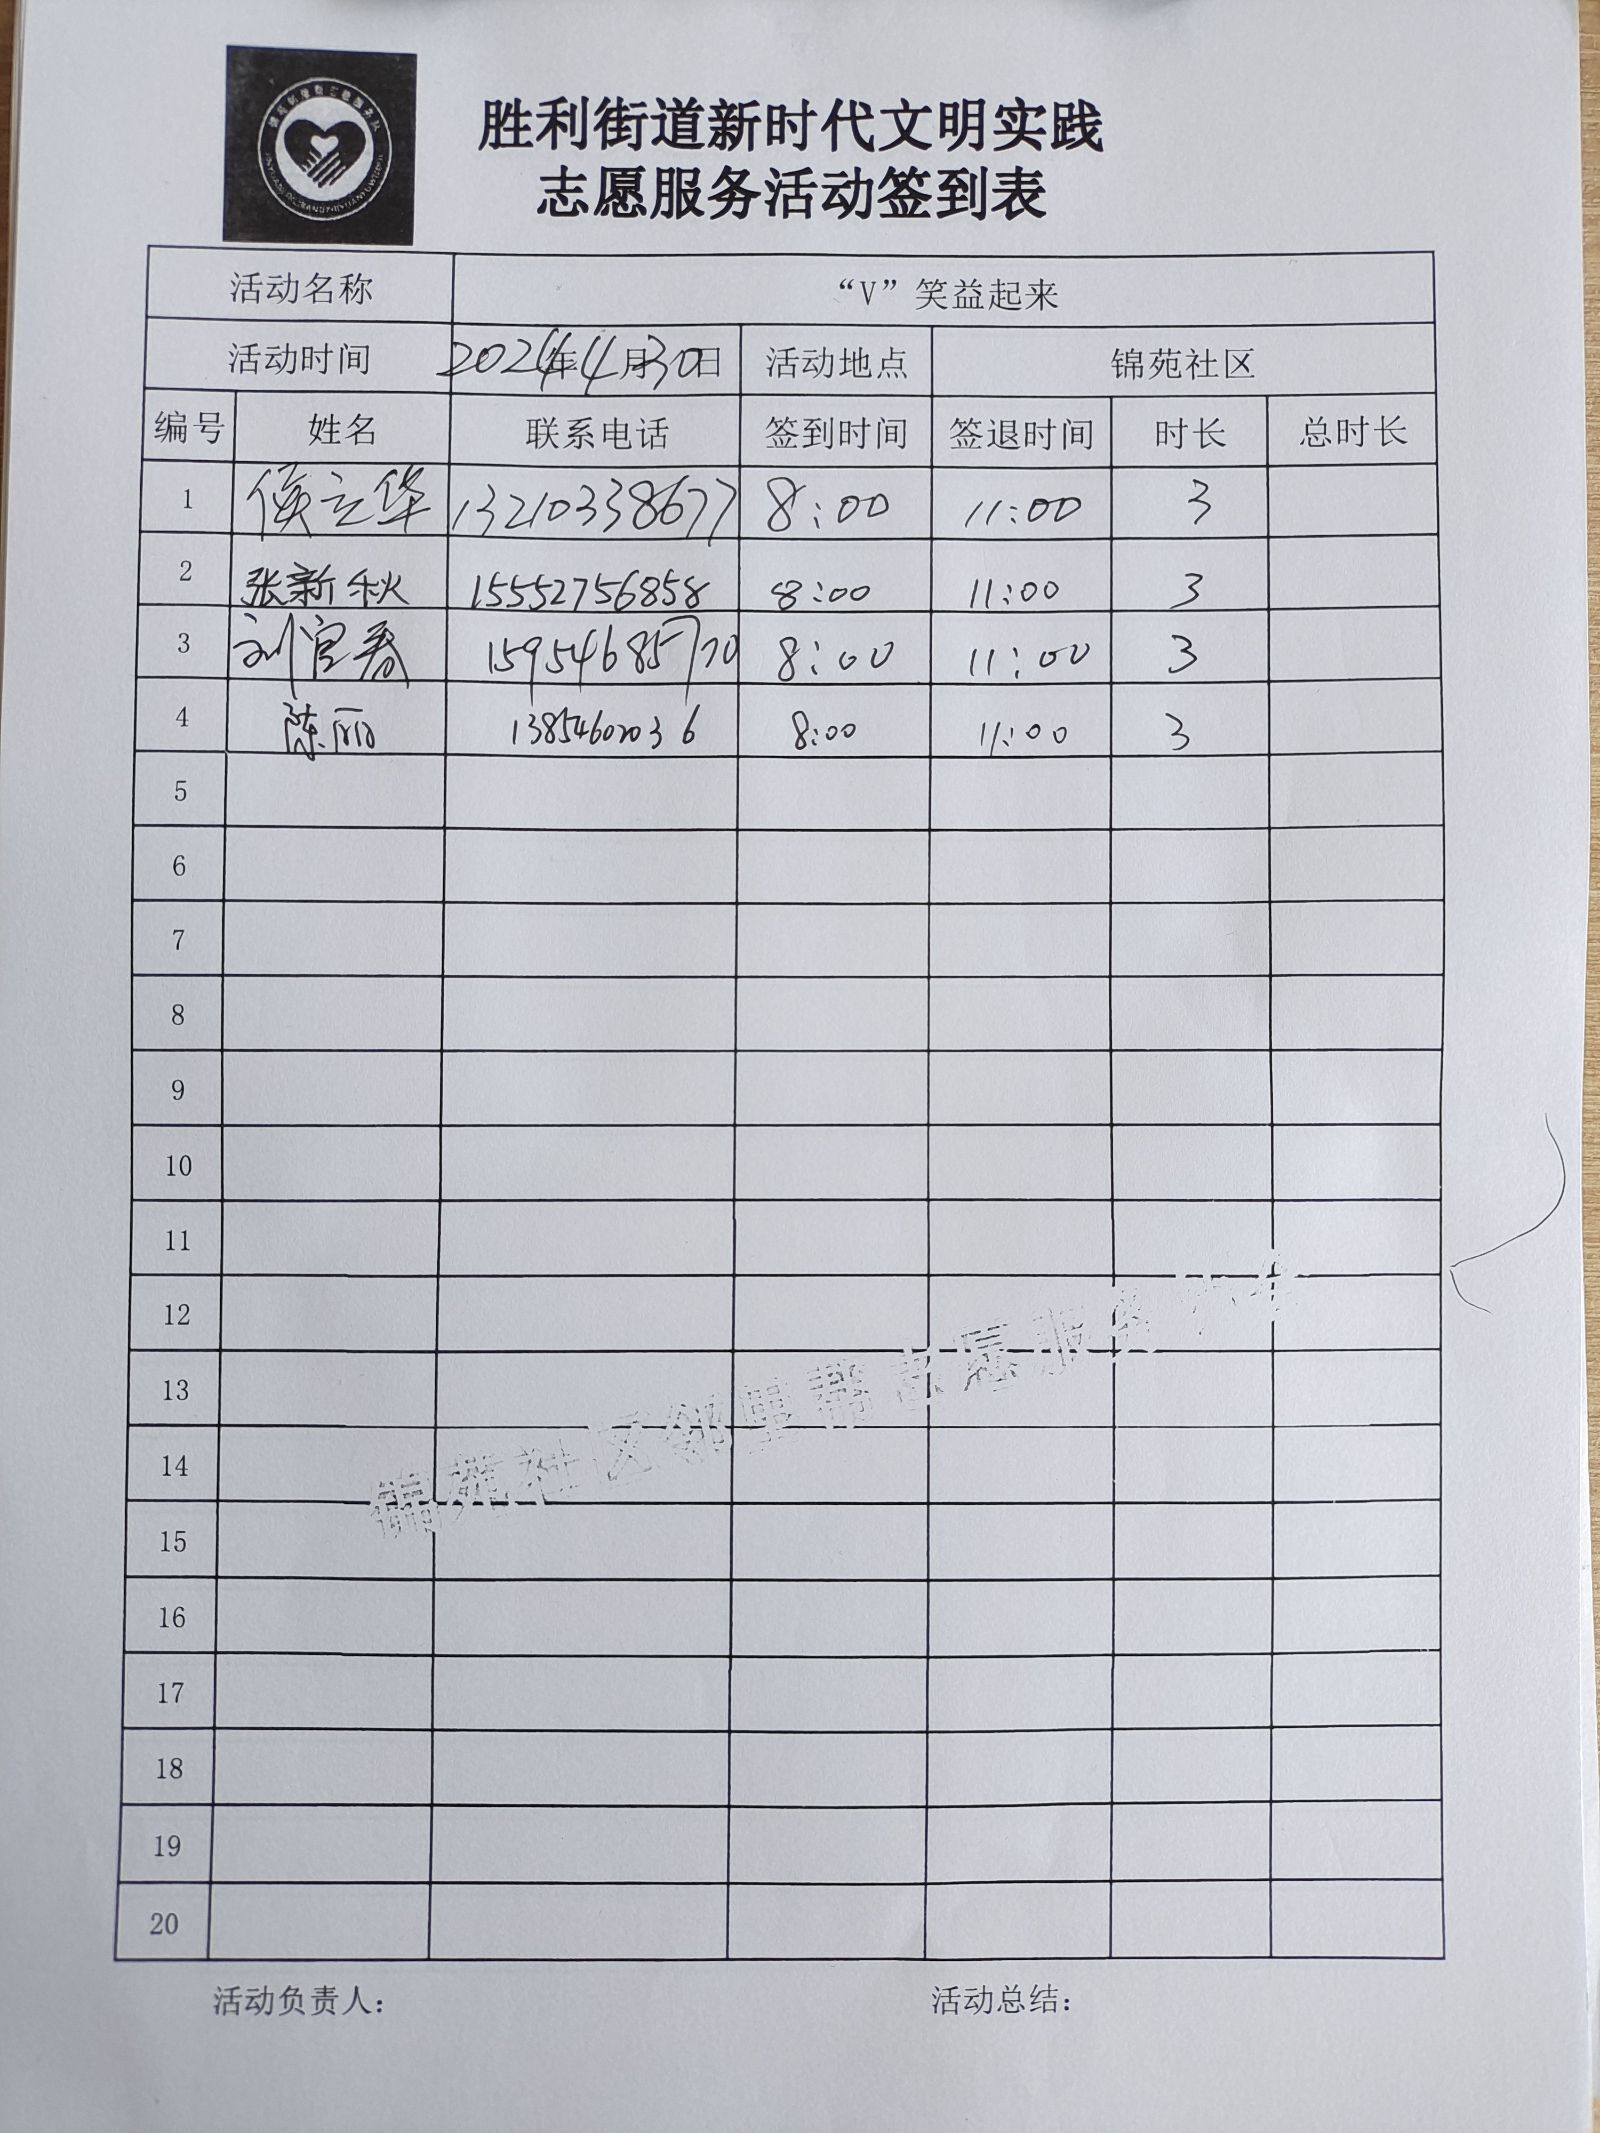 胜利街道新时代文明实践
志愿服务活动签到表
活动名称 “V”笑益起来
活动时间 2024年4月30日 活动地点 锦苑社区
编号 姓名 联系电话 签到时间 签退时间 时长 总时长
1 侯立华 13210338677 8:00 11:00 3
2 张新秋 15552756858 8:00 11:00 3
3 刘官春 15954685770 8:00 11:00 3
4 陈丽 13854602036 8:00 11:00 3
5
6
7
8
9
10
11
12
13
14
15
16
17
18
19
20
锦苑社区邻里帮志愿服务
活动负责人: 活动总结: